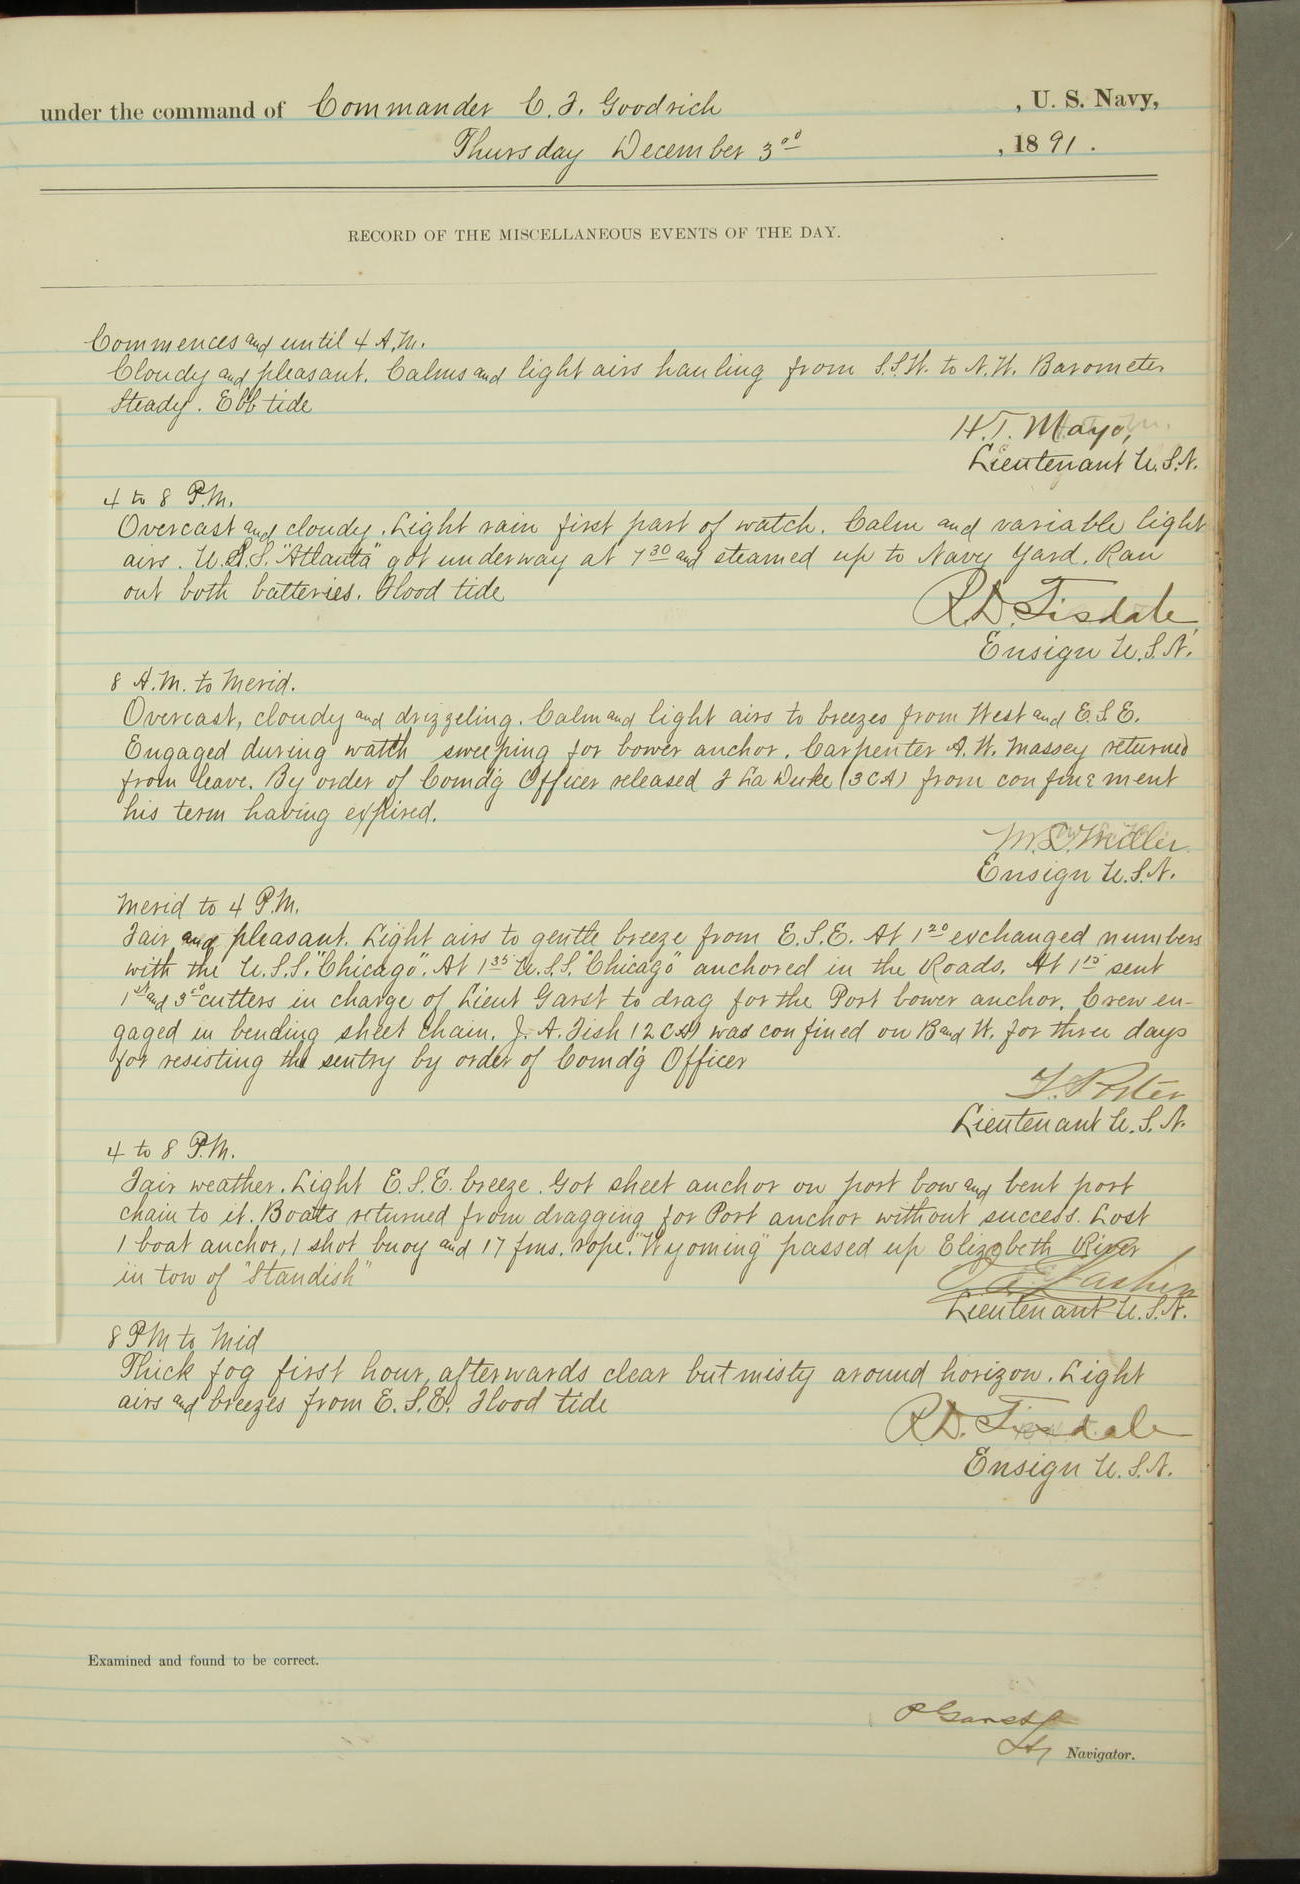 under the command of Commander C. F. Goodrich , U. S. Navy,
Thursday December 3rd , 1891.
RECORD OF THE MISCELLANEOUS EVENTS OF THE DAY.
Commences and until 4 A.M.
Cloudy and pleasant. Calms and light airs hauling from S.S.W. to N.W. Barometer
Steady. Ebb tide
H.T. Mayo,
Lieutenant U.S.N.
4 to 8 P.M.
Overcast and cloudy. Light rain first part of watch. Calm and variable light
airs. U.S.S. "Atlanta" got underway at 7 30 and steamed up to Navy Yard. Ran
out both batteries. Flood tide
R.D. Tisdale
Ensign U.S.N.
8 A.M. to Merid.
Overcast, cloudy and drizzeling. Calm and light airs to breezes from West and E.S.E.
Engaged during watch sweeping for bower anchor. Carpenter A.W. Massey returned
from leave. By order of Comd'g Officer released F La Duke (3CA) from confinement
his term having expired.
Miller
Ensign U.S.N.
Merid to 4 P.M.
Fair and pleasant. Light airs to gentle breeze from E.S.E. At 1 20 exchanged numbers
with the U.S.S. "Chicago". At 1 35 U.S.S. "Chicago" anchored in the Roads. At 1 15 sent
1st and 3rd cutters in charge of Lieut Garst to drag for the Port bower anchor. Crew en-
gaged in bending sheet chain. J. A. Fish (2CA) was confined on B and W. for three days
for resisting the sentry by order of Comd'g Officer
Lieutenant U.S.N.
4 to 8 P.M.
Fair weather. Light E.S.E. breeze. Got sheet anchor on port bow and bent port
chain to it. Boats returned from dragging for Port anchor without success. Lost
1 boat anchor, 1 shot buoy and 17 fms. rope. "Wyoming" passed up Elizabeth River
in tow of "Standish"
Lieutenant U.S.N.
8 PM to Mid
Thick fog first hour, afterwards clear but misty around horizon. Light
airs and breezes from E.S.E. Flood tide
R.D. Tisdale
Ensign U.S.N.
Examined and found to be correct.
Garst
Navigator.